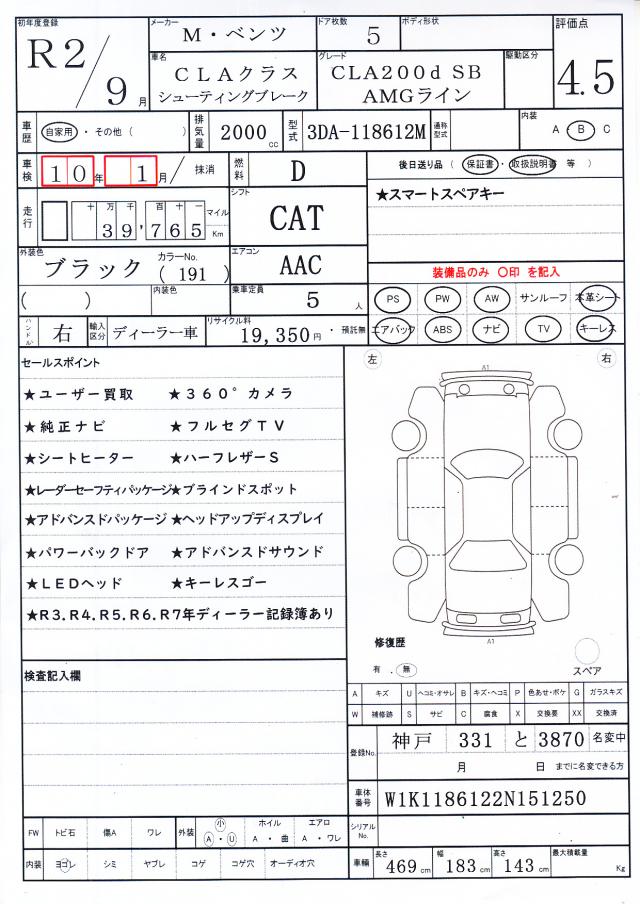 初年度登録 R2/9月
メーカー M・ベンツ
ドア枚数 5
ボディ形状
評価点 4.5
車名 CLAクラス シューティングブレーク
グレード CLA200d SB AMGライン
駆動区分
車歴 自家用・その他( )
排気量 2000cc
型式 3DA-118612M
通称型式
内装 A・B・C
車検 10年 1月/ 抹消
燃料 D
後日送り品(保証書・取扱説明書 等)
★スマートスペアキー
走行 十万千百十一 39,765 マイル Km
シフト CAT
外装色 ブラック カラーNo. (191)
エアコン AAC
装備品のみ 〇印 を記入
( ) 内装色
乗車定員 5人
PS PW AW サンルーフ 本革シート
エアバック ABS ナビ TV キーレス
ハンドル 右
輸入区分 ディーラー車
リサイクル料 19,350円・預託無
セールスポイント
★ユーザー買取 ★360°カメラ
★純正ナビ ★フルセグTV
★シートヒーター ★ハーフレザーS
★レーダーセーフティパッケージ★ブラインドスポット
★アドバンスドパッケージ ★ヘッドアップディスプレイ
★パワーバックドア ★アドバンスドサウンド
★LEDヘッド ★キーレスゴー
★R3.R4.R5.R6.R7年ディーラー記録簿あり
左 右
A1
A1
修復歴
有．無
スペア
検査記入欄
A キズ U ヘコミ・オサレ B キズ・ヘコミ P 色あせ・ボケ G ガラスキズ
W 補修跡 S サビ C 腐食 X 交換要 XX 交換済
登録No. 神戸 331 と 3870 名変中
月 日 までに名変できる方
車体番号 W1K1186122N151250
シリアルNo.
FW トビ石 傷A ワレ
外装 小 A・U ホイル A・曲 エアロ A・ワレ
内装 ヨゴレ シミ ヤブレ コゲ コゲ穴 オーディオ穴
車輛 長さ 469cm 幅 183cm 高さ 143cm 最大積載量 Kg